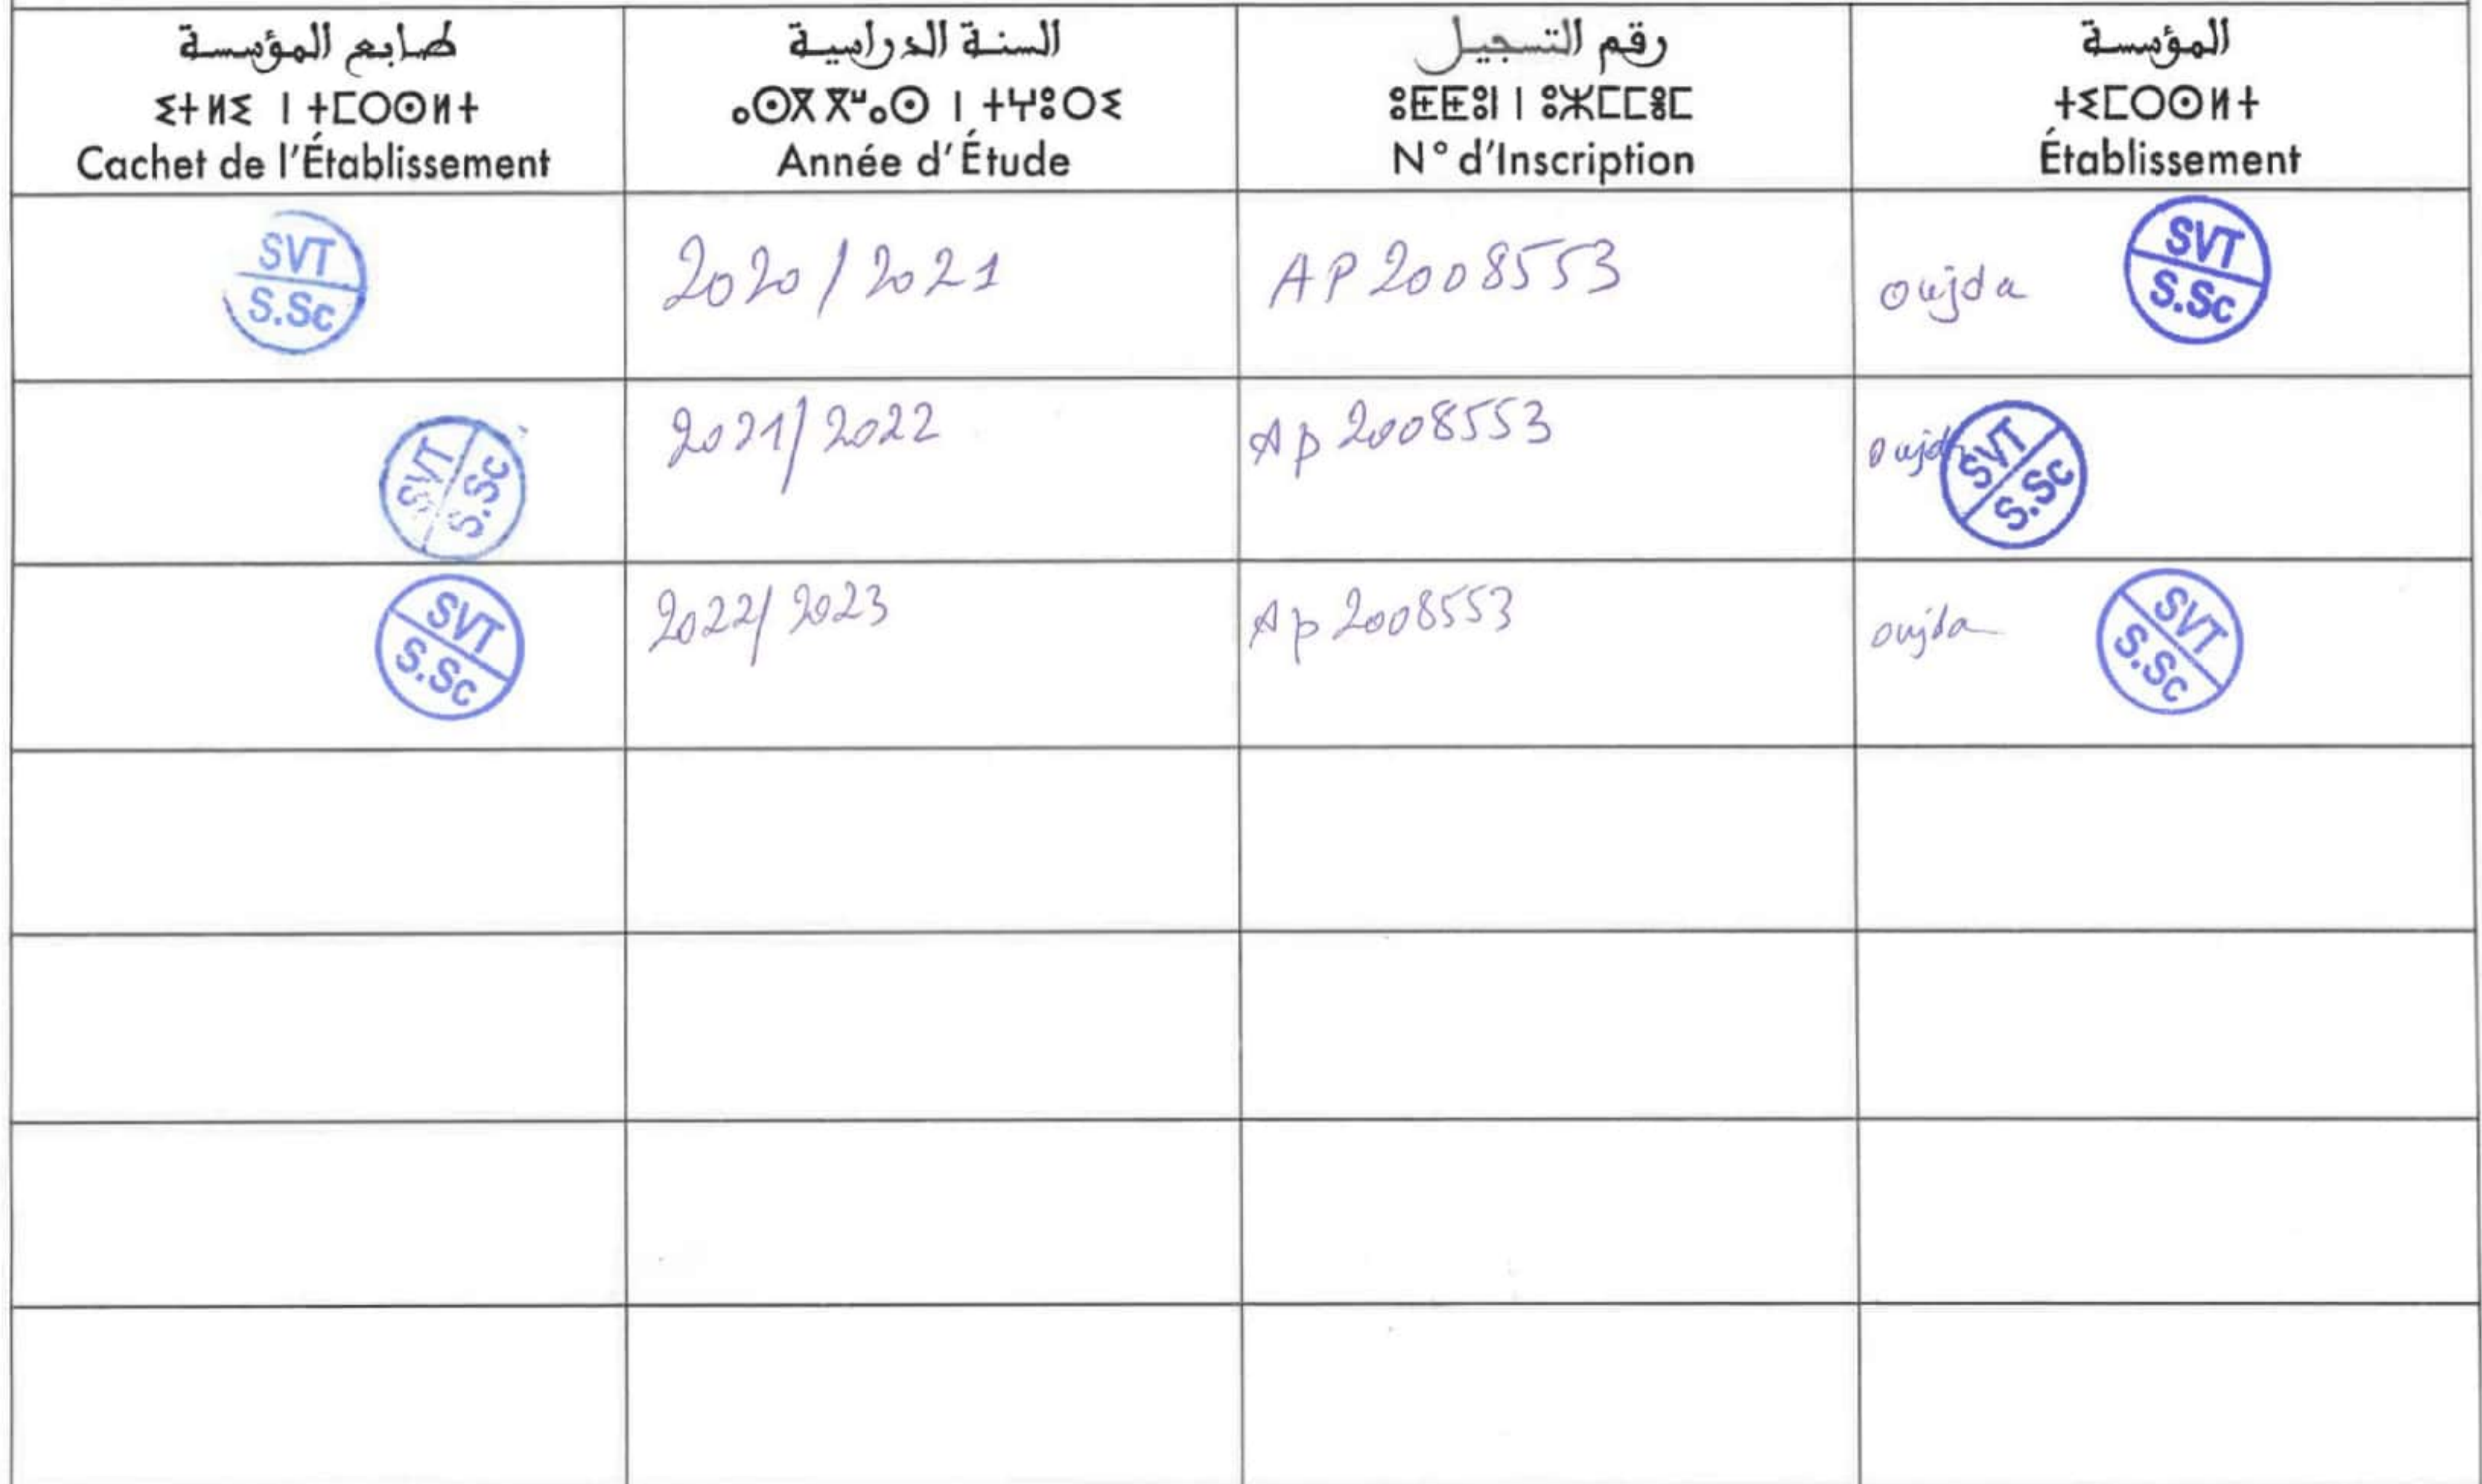 طابع المؤسسة
ⵉⵜⵍⵉ ⵏ ⵜⵎⵔⵙⵍⵜ
Cachet de l'Établissement
السنة الدراسية
ⴰⵙⴳⴳⵯⴰⵙ ⵏ ⵜⵖⵓⵔⵉ
Année d'Étude
رقم التسجيل
ⵓⵟⵟⵓⵏ ⵏ ⵓⵣⵎⵎⴻⵎ
N° d'Inscription
المؤسسة
ⵜⵉⵎⵔⵙⵍⵜ
Établissement
SVT
S.Sc
2020/2021
AP2008553
oujda
SVT
S.Sc
SVT
S.Sc
2021/2022
Ap 2008553
oujda
SVT
S.Sc
SVT
S.Sc
2022/2023
Ap 2008553
oujda
SVT
S.Sc